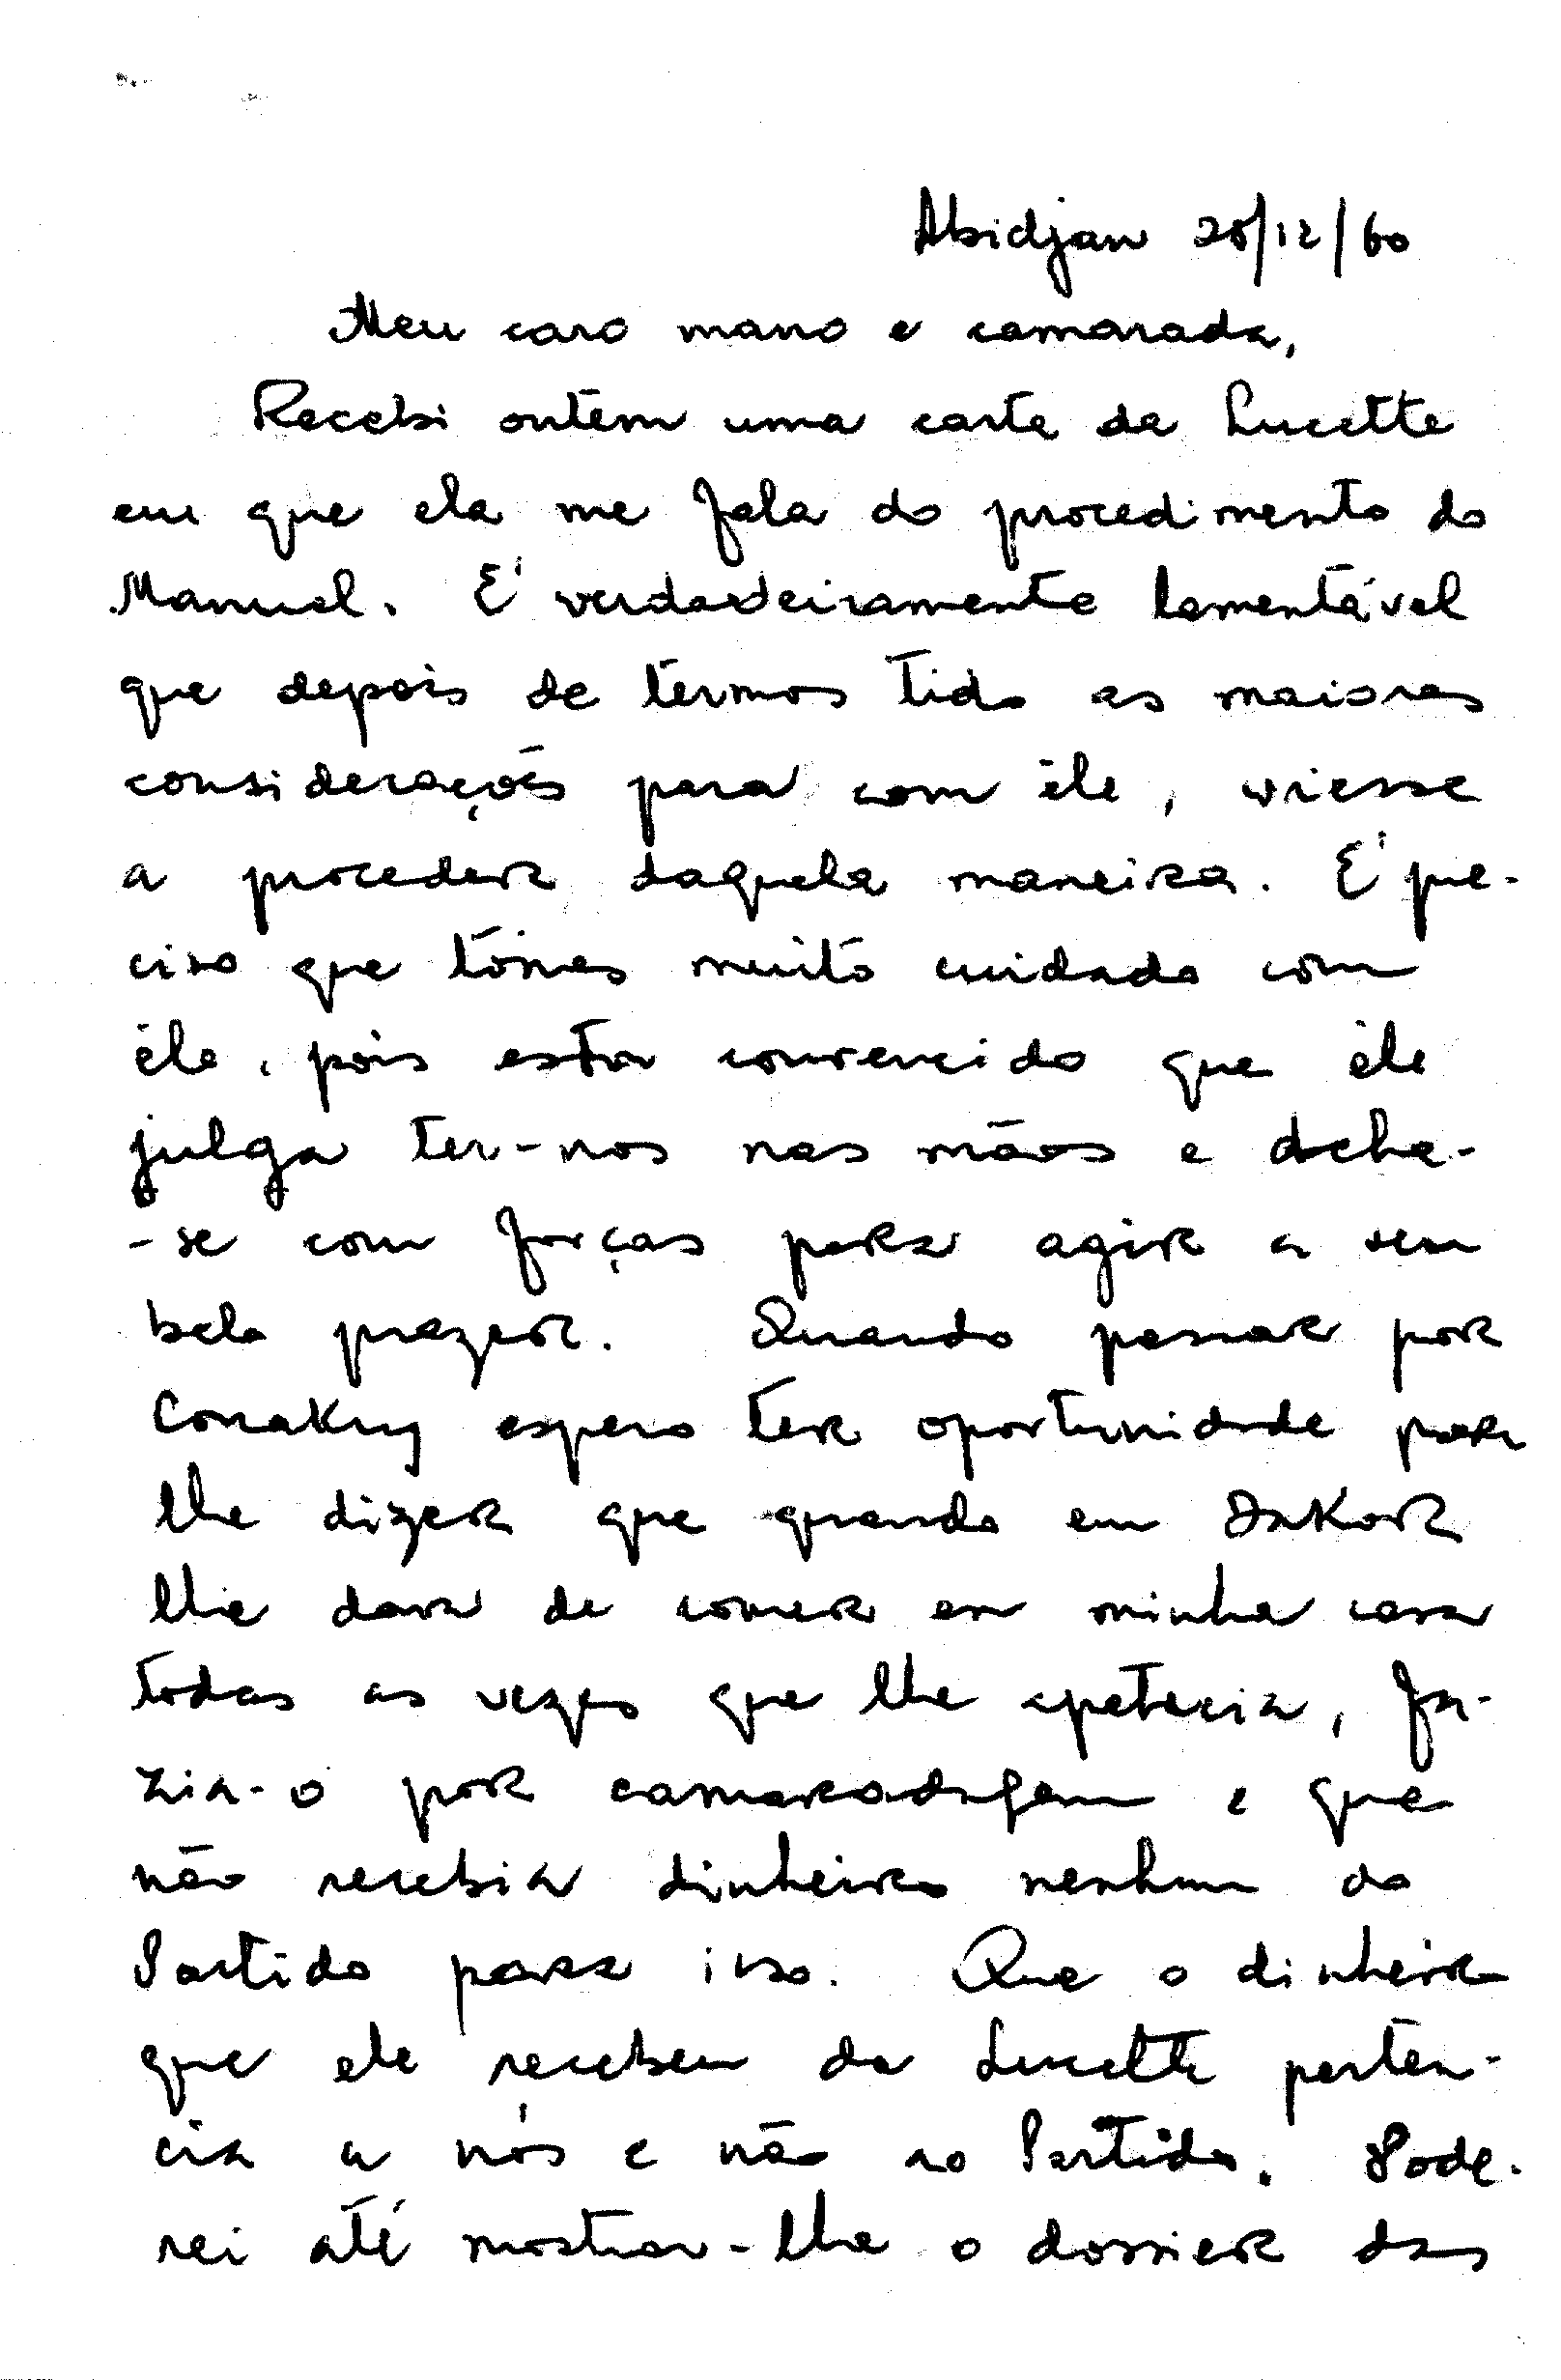 Abidjan 28/12/60
Meu caro mano e camarada,
Recebi ontem uma carta da Lucette
em que ela me fala do procedimento do
Manuel. É verdadeiramente lamentável
que depois de termos tido as maiores
considerações para com êle, viesse
a proceder daquela maneira. É pre-
ciso que tomes muito cuidado com
êle, pois estou convencido que êle
julga ter-nos nas mãos e acha-
-se com forças para agir a seu
belo prazer. Quando passar por
Conakry espero ter oportunidade para
lhe dizer que quando em Dakar
lhe dava de comer em minha casa
todas as vezes que lhe apetecia, fa-
zia-o por camaradagem e que
não recebia dinheiro nenhum do
Partido para isso. Que o dinheiro
que ele recebeu da Lucette perten-
cia a nós e não ao Partido. Pode-
rei até mostrar-lhe o dossier das